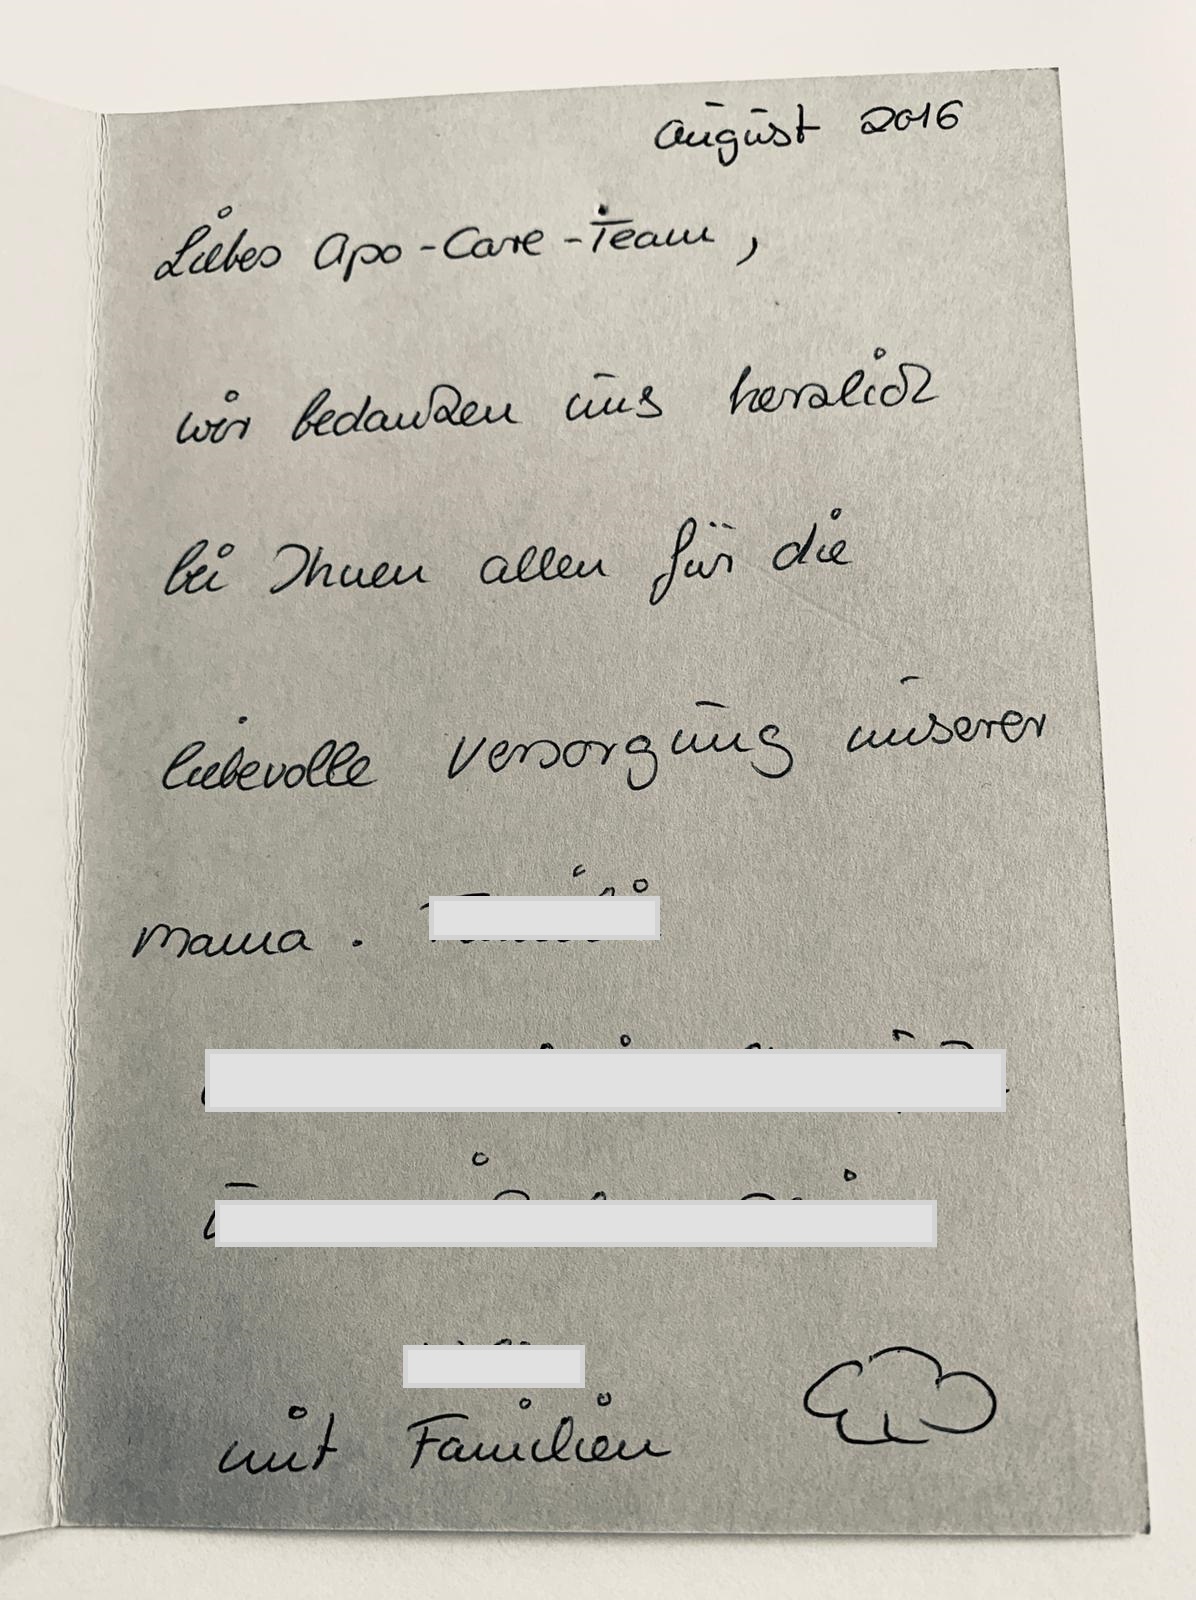 August 2016
Liebes Apo-Care-Team,
wir bedanken uns herzlich
bei Ihnen allen für die
liebevolle Versorgung unserer
Mama.
mit Familien